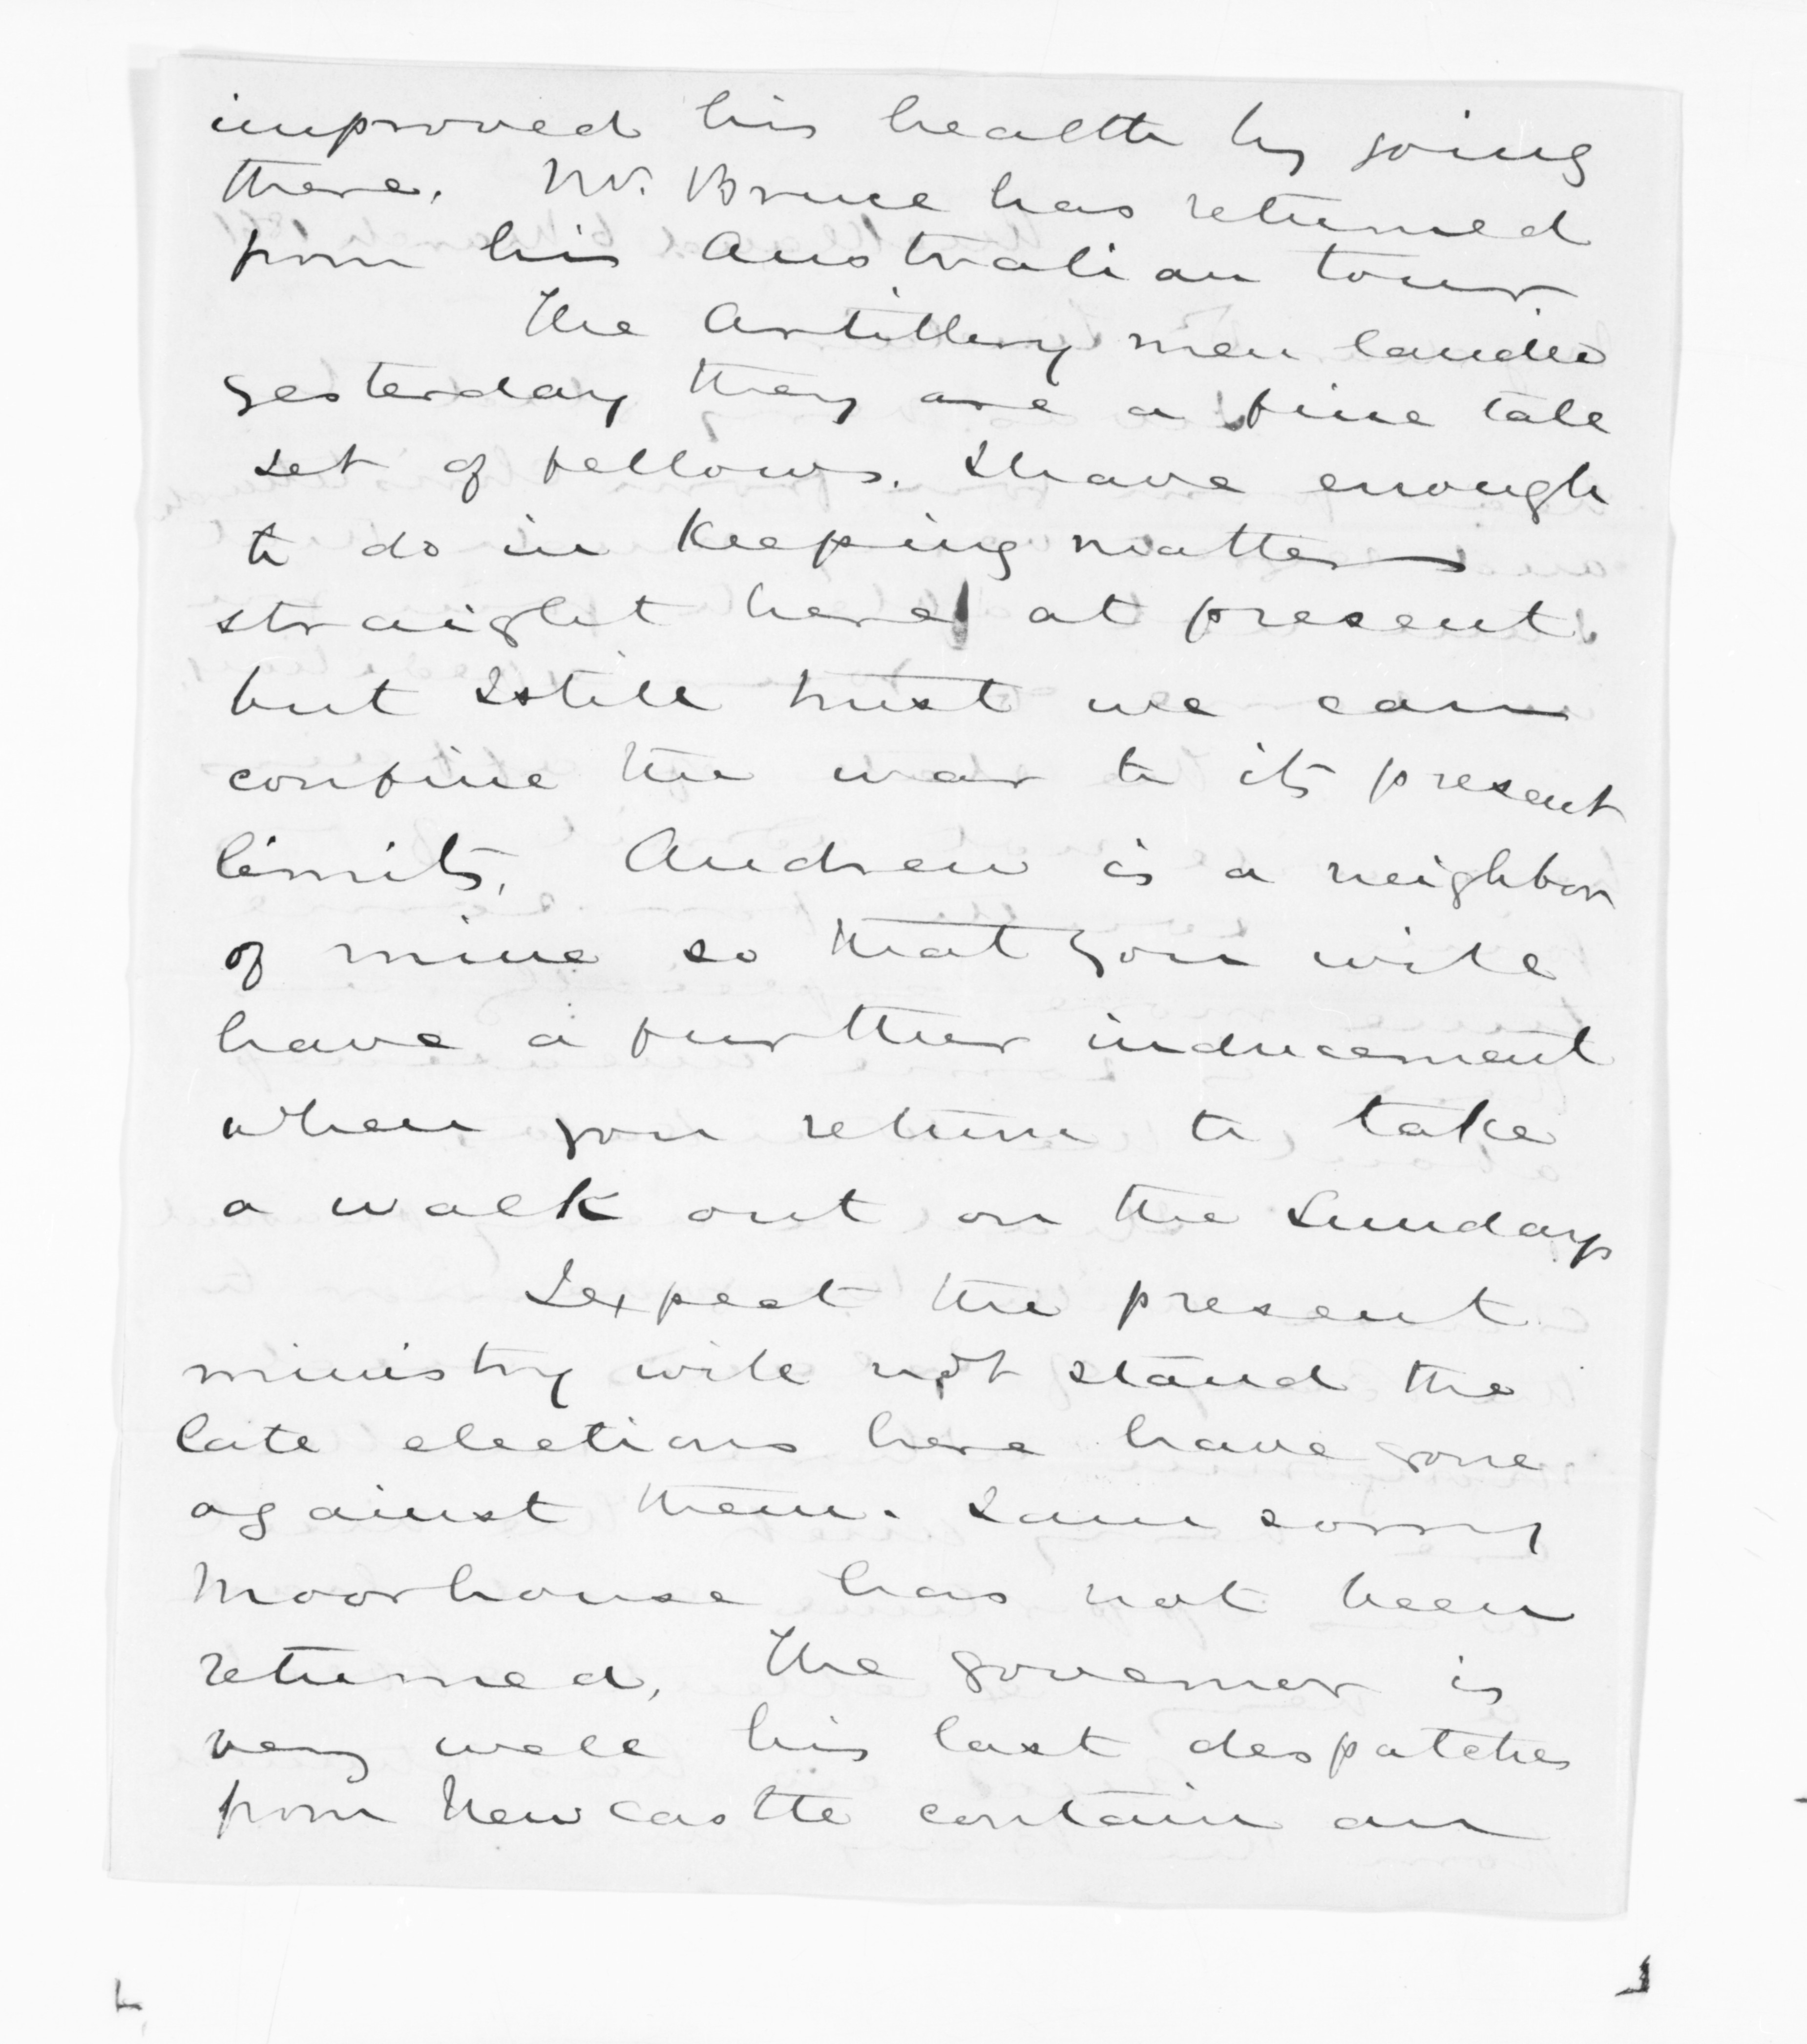 improved his health by going
there. Mr. Bruce has returned
from his Australian tour.
The Artillery men landed
yesterday they are a fine tall
set of fellows. I have enough
to do in keeping matters
straight here at present
but I still trust we can
confine the war to its present
limits. Andrew is a neighbor
of mine so that you will
have a further inducement
when you return to take
a walk out on the Sundays
I expect the present
ministry will not stand the
late elections here have gone
against them. I am sorry
Moorhouse has not been
returned. The governor is
very well his last despatches
from Newcastle contain an